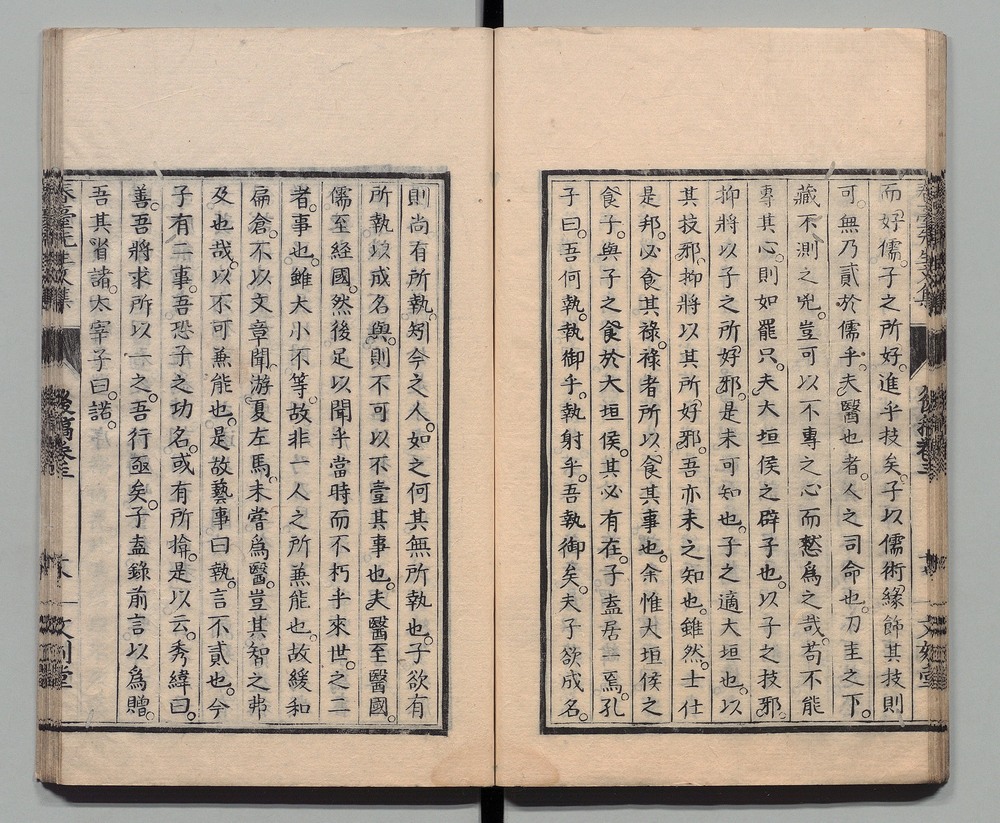 而好儒。子之所好。進乎技矣。子以儒術緣飾其技則
可。無乃貳於儒乎。夫醫也者。人之司命也。刀圭之下。
藏不測之兇。豈可以不專之心而憖爲之哉。苟不能
專其心。則如罷只。夫大垣侯之辟子也。以子之技邪。
抑將以子之所好邪。是未可知也。子之適大垣也。以
其技邪。抑將以其所好邪。吾亦未之知也。雖然。士仕
是邦。必食其祿。祿者所以食其事也。余惟大垣侯之
食子。與子之食於大垣侯。其必有在。子盍居一焉。孔
子曰。吾何執。執御乎。執射乎。吾執御矣。夫子欲成名。
則尚有所執。矧今之人。如之何其無所執也。子欲有
所執。以成名與。則不可以不壹其事也。夫醫至醫國。
儒至經國。然後足以聞乎當時而不朽乎來世。之二
者。事也。雖大小不等。故非一人之所兼能也。故緩和
扁倉。不以文章聞。游夏左馬。未嘗爲醫。豈其智之弗
及也哉。以不可兼能也。是故藝事曰執。言不貳也。今
子有二事。吾恐子之功名。或有所損。是以云。秀緯曰。
善。吾將求所以一之。吾行亟矣。子盍錄前言以爲贈。
吾其省諸。太宰子曰。諾。
後稿卷三